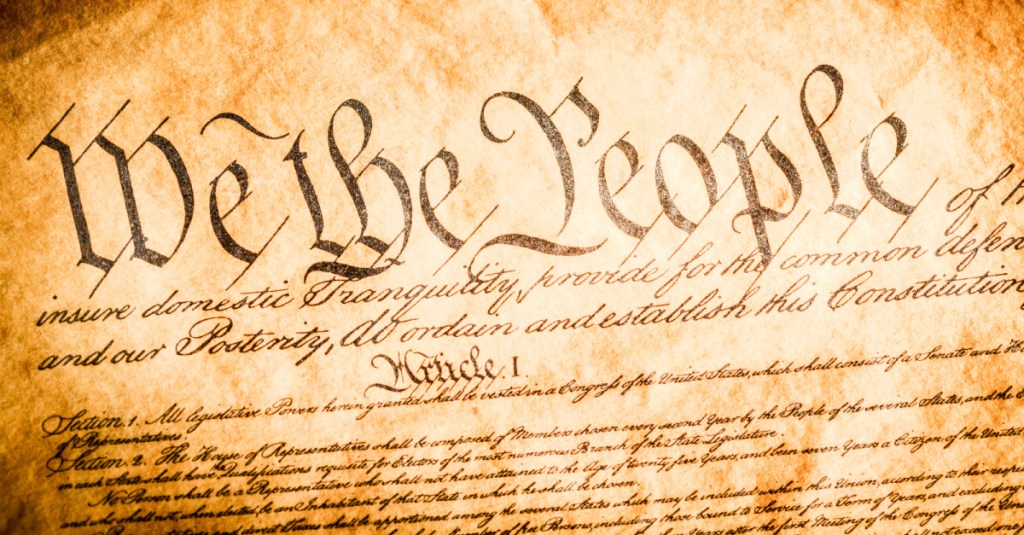 We the People of th
insure domestic Tranquility, provide for the common defen
and our Posterity, do ordain and establish this Constitution
Article. I.
Section. 1. All legislative Powers herein granted shall be vested in a Congress of the United States, which shall consist of a Senate and Ho
of Representatives.
Section. 2. The House of Representatives shall be composed of Members chosen every second Year by the People of the several States, and the
in each State shall have the Qualifications requisite for Electors of the most numerous Branch of the State Legislature.
No Person shall be a Representative who shall not have attained to the Age of twenty five Years, and been seven Years a Citizen of the United
and who shall not, when elected, be an Inhabitant of that State in which he shall be chosen.
and direct Taxes shall be apportioned among the several States which may be included within this Union, according to their respec
of free Persons, including those bound to Service for a Term of Years, and excluding
Years after the first Meeting of the Congress of the Un
shall not exceed one